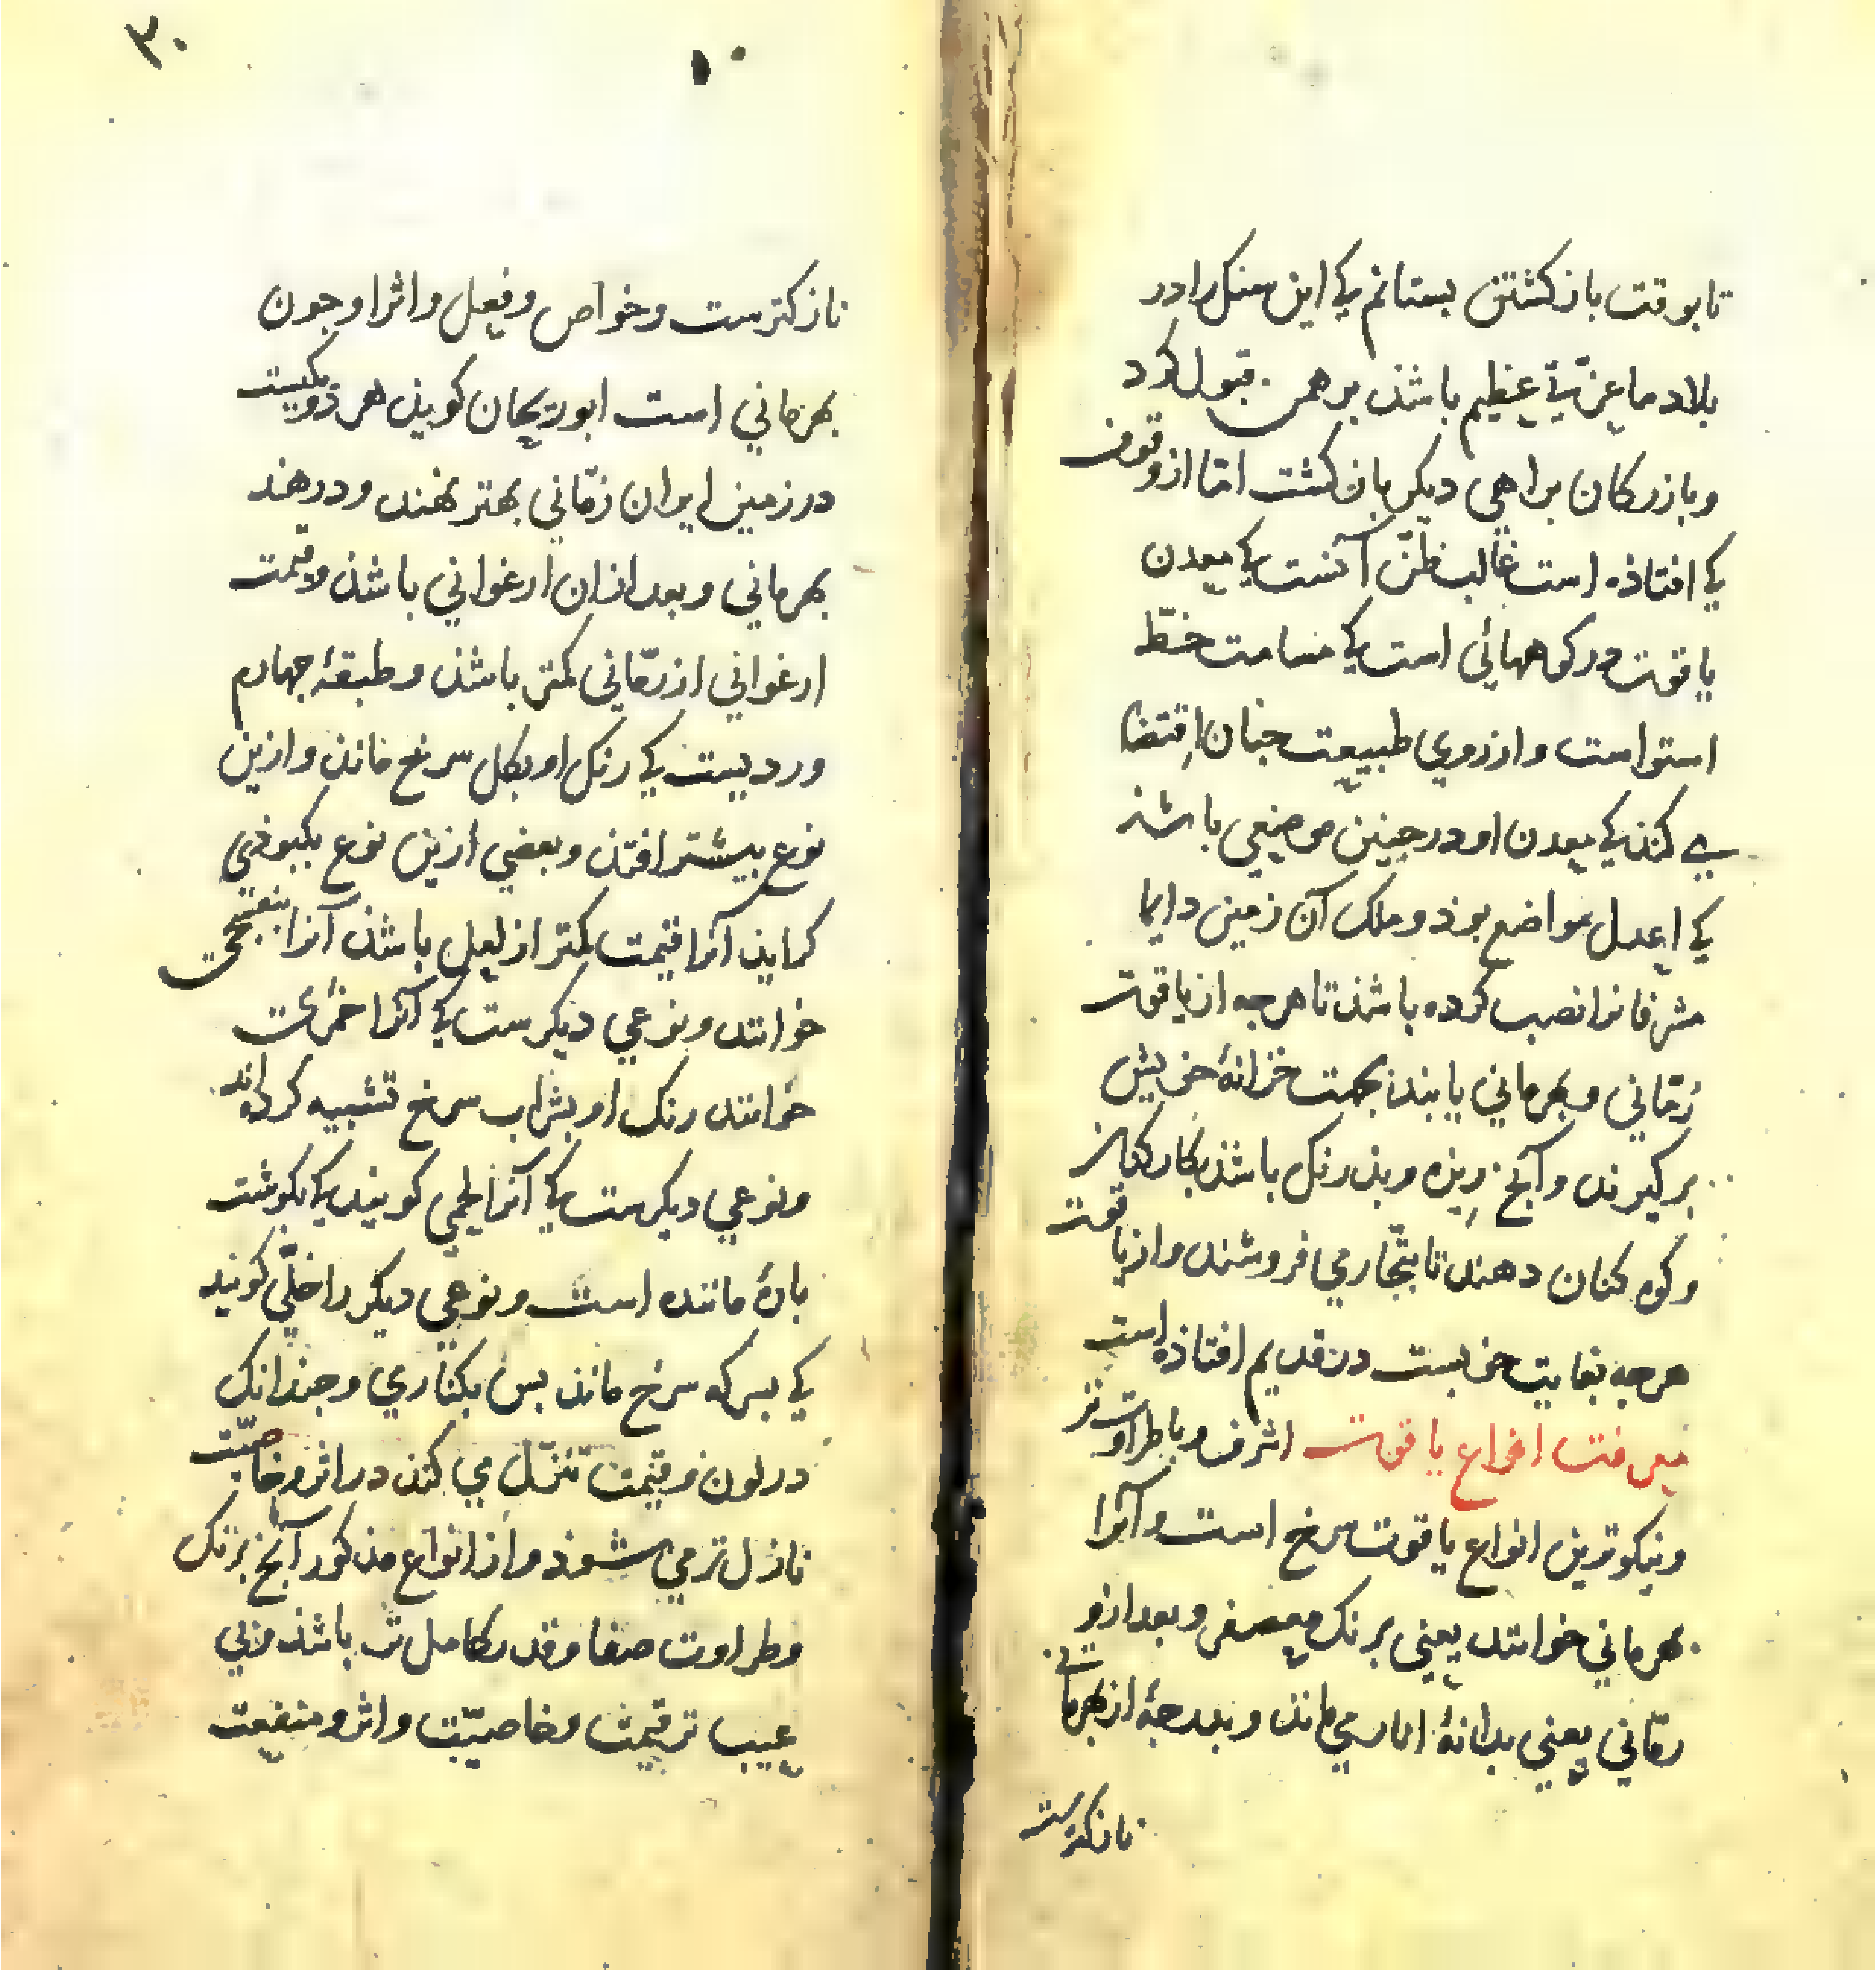 تا بوقت بازکشتن بستانم کی این سنک را در
بلاد ما عزّتی عظیم باشذ برهمن قبول کرد
و بازرکان براهی دیکر بازکشت امّا از وقوف
کی افتاذه است غالب ظنّ آنست کی معدن
یاقوت در کوههائی است کی مسامت خطّ
استواست و از روی طبیعت جنان اقتضا
می کند کی معدن او در جنین موضعی باشذ
کی اعدل مواضع بوذ و ملک آن زمین دایما
مشرفانرا نصب کرده باشذ تا هرجه از یاقوت
رمّانی و بهرمانی یابند بجهت خزانهٔ خویش
برکیرند و آنج ریزه و بذرنک باشذ بکارکنان
و کوه کنان دهند تا بتجّار می فروشند و از یاقوت
هرجه بغایت خوبست در قدیم افتاذه است
معرفت انواع یاقوت اشرف و باطراوت تر
و نیکوترین انواع یاقوت سرخ است و آنرا
بهرمانی خوانند یعنی برنک معصفر و بعد ازو
رمّانی یعنی بدانهٔ انار می ماند و بدرجهٔ از بهرمانی
نازکترست
۳۰
۱۰
نازکترست و خواص و فعل و اثر او جون
بهرمانی است ابوریحان کویذ هر دو یکیست
در زمین ایران رمّانی بهتر نهند و در هند
بهرمانی و بعد از ان ارغوانی باشذ و قیمت
ارغوانی از رمّانی کمتر باشذ و طبقهٔ جهارم
وردیست کی رنک او بکل سرخ ماند و ازین
نوع بیشتر افتد و بعضی ازین نوع بکبوذی
کراید آنرا قیمت کمتر از لعل باشذ آنرا بنفسجی
خوانند و نوعی دیکرست کی آنرا خمری
خوانند رنک او بشراب سرخ تشبیه کرده اند
و نوعی دیکرست کی آنرا لحمی کویند کی بکوشت
بارهٔ ماننده است و نوعی دیکر را خلّی کویند
کی بسرکه سرخ ماند بس بکناری و جندانک
در لون و قیمت تنزّل می کند در اثر و خاصیّت
نازل تر می شوذ و از انواع مذکور آنج برنک
و طراوت صفا و قدر کامل تر باشذ و بی
عیب تر قیمت و خاصیّت و اثر و منفعت